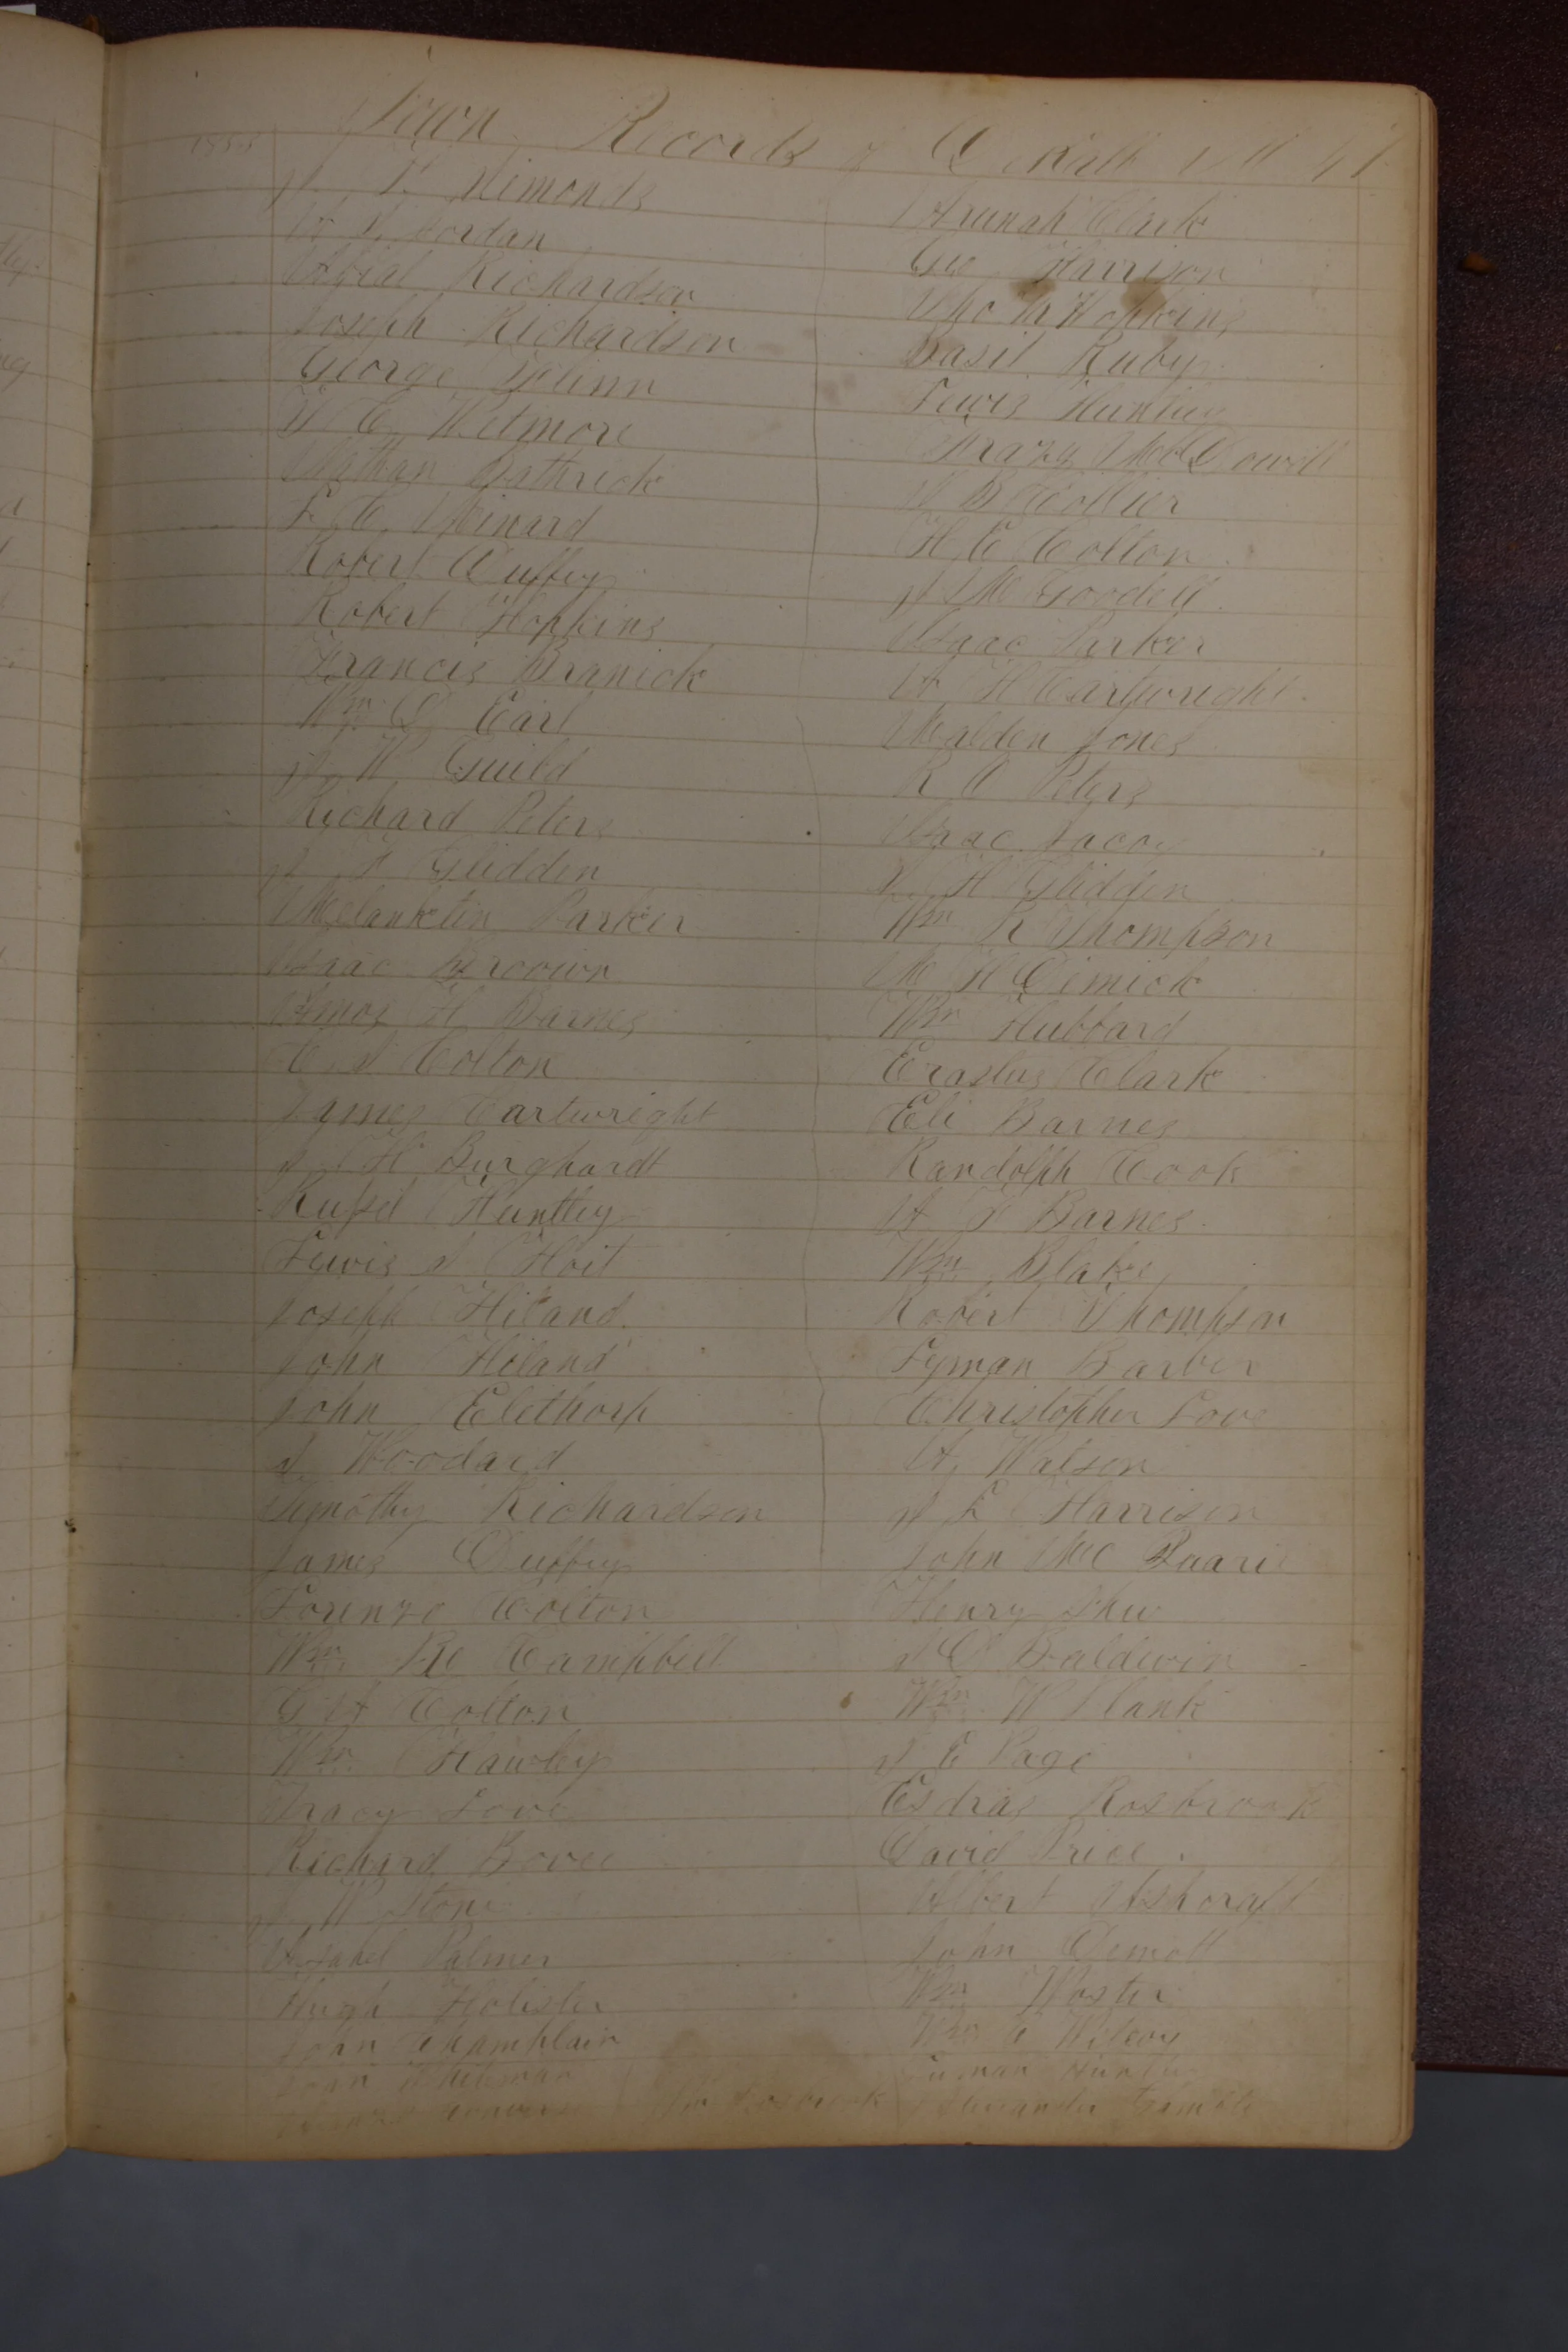 1855 Town Records of
Simonds
Jordan
Richardson
Joseph Richardson
George Glinn
Wetmore
Nathan Bathrick
L. C. Minard
Robert Duffey
Robert Hopkins
Francis Branick
Wm D Earl
W Guild
Richard Peters
Glidden
Melankten Parker
Isaac Brown
Amos H Barnes
C S Colton
James Cartwright
H Burghardt
Russel Huntley
Lewis S Hoit
Joseph Hiland
John Hiland
John Elethorp
S Woodard
Tymothy Richardson
James Duffey
Lorenzo Colton
Wm Mc Campbell
G A Colton
Wm Hawley
Tracy Love
Richard Bovee
W Stone
Asahel Palmer
Hugh Holister
John Champlain
John Whitman
Clark
Geo Harrison
Tho M Hopkins
Basil Ruby
Lewis Huntley
McDowell
Collier
H C Colton
Goodell
Isaac Parker
A H Cartwright
Walden Jones
R C Peters
Isaac Jacoy
S H Glidden
Wm R Thompson
M H Dimick
Wm Hubbard
Erastus Clark
Eli Barnes
Randolph Cook
A Barnes
Wm Blake
Robert Thompson
Lyman Barber
Christopher Love
A Watson
S L Harrison
John Mc
Henry Shew
S D Baldwin
Wm W Plank
S E Page
Esdras Rosbrook
David Price
Albert Ashcraft
John Demott
Wm Woster
Wm Wilcoy
Huntley
Rosbrook
Alexander Gamble